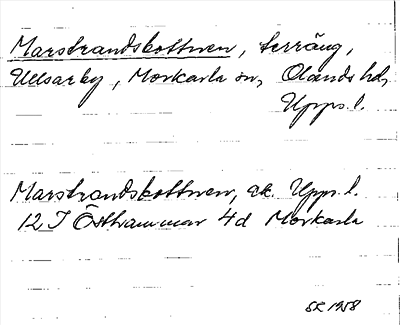 Marstrandskottnen, terräng,
Ullsarby, Morkarla sn, Olands hd,
Upps. l.
Marstrandskottnen, ek. Upps. l.
12 I Östhammar 4d Morkarla